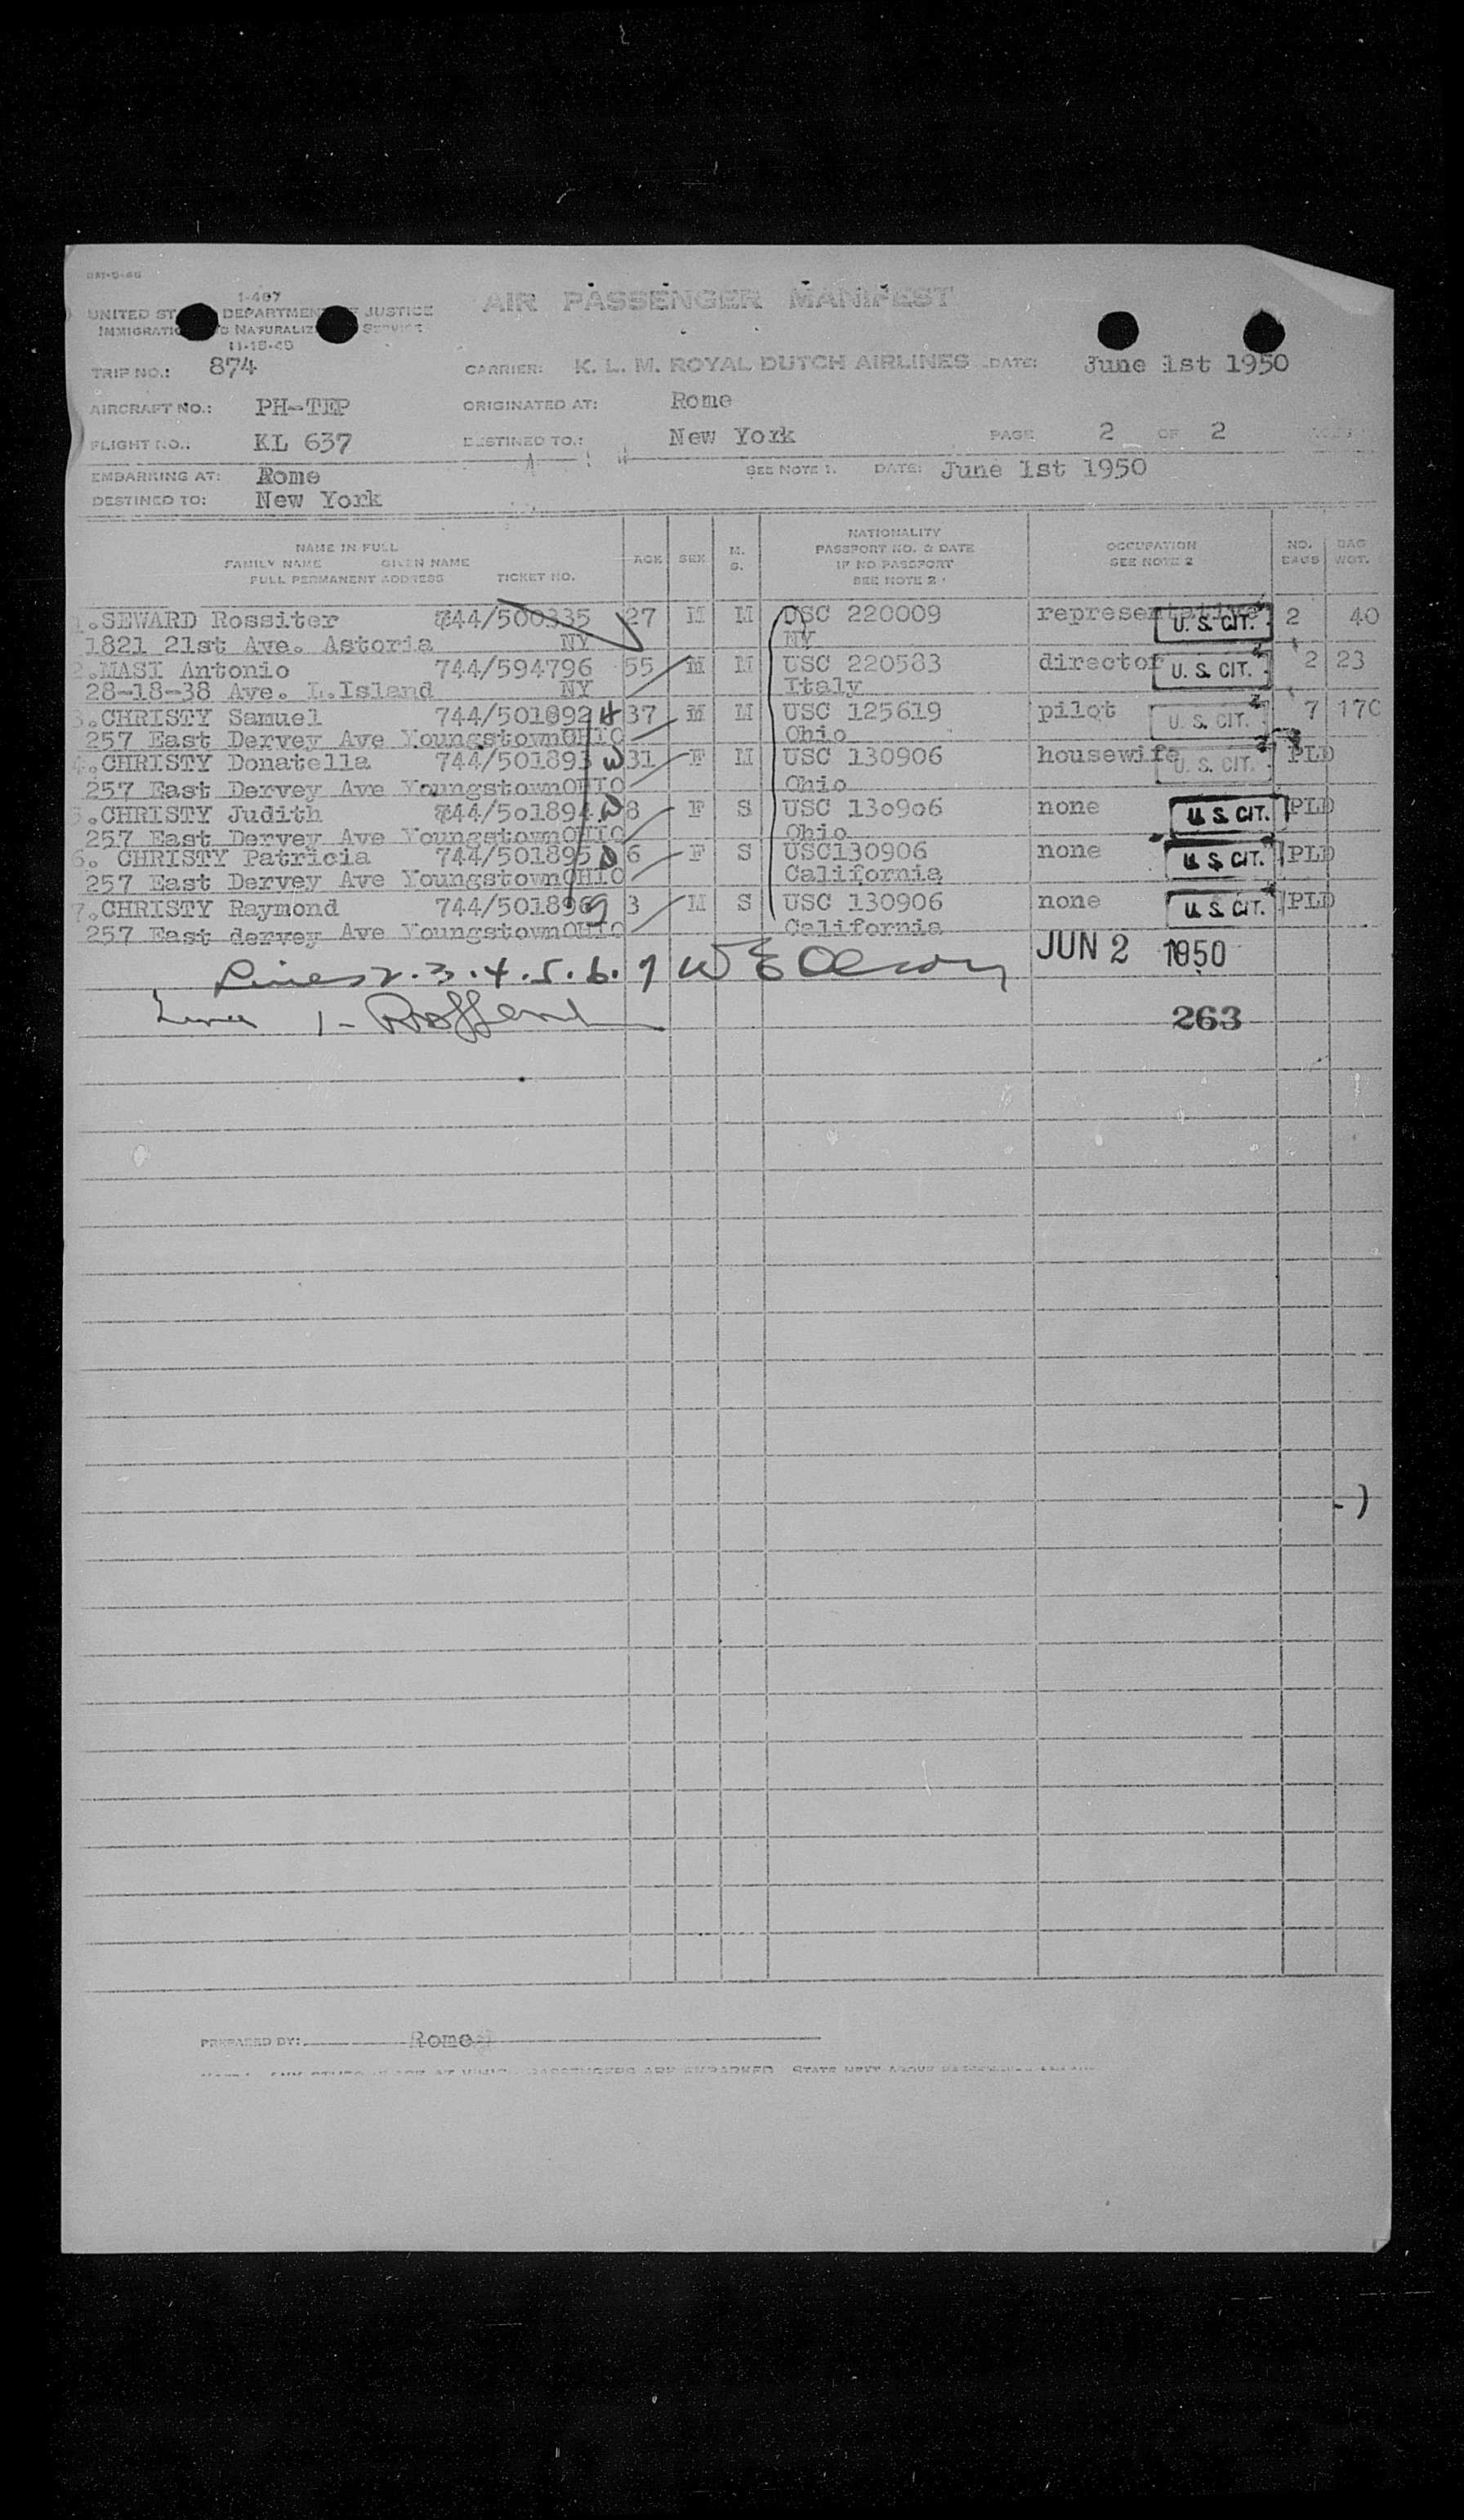 I-467
AIR PASSENGER MANIFEST
UNITED ST DEPARTMEN F JUSTICE
IMMIGRATIO D NATURALIZ SERVICE
11-18-49
TRIP NO.: 874 CARRIER: K. L. M. ROYAL DUTCH AIRLINES DATE: June 1st 1950
AIRCRAFT NO.: PH-TEP ORIGINATED AT: Rome
FLIGHT NO.: KL 637 DESTINED TO.: New York PAGE 2 OF 2
EMBARKING AT: Rome SEE NOTE 1. DATE: June 1st 1950
DESTINED TO: New York
NAME IN FULL
FAMILY NAME GIVEN NAME
FULL PERMANENT ADDRESS TICKET NO. AGE SEX M. S. NATIONALITY PASSPORT NO. & DATE IF NO PASSPORT SEE NOTE 2 OCCUPATION SEE NOTE 2 NO. BAGS BAG WGT.
1.SEWARD Rossiter 744/500335 27 M M USC 220009 representative U. S. CIT. 2 40
1821 21st Ave. Astoria NY NY
2.MASI Antonio 744/594796 55 M M USC 220583 director U. S. CIT. 2 23
28-18-38 Ave. L.Island NY Italy
3.CHRISTY Samuel 744/501892 H 37 M M USC 125619 pilot U. S. CIT. 7 170
257 East Dervey Ave Youngstown OHIO Ohio
4.CHRISTY Donatella 744/501893 W 31 F M USC 130906 housewife U. S. CIT. PLD
257 East Dervey Ave Youngstown OHIO Ohio
5.CHRISTY Judith 744/501894 D 8 F S USC 130906 none U. S. CIT. PLD
257 East Dervey Ave Youngstown OHIO Ohio
6. CHRISTY Patricia 744/501895 D 6 F S USC130906 none U. S. CIT. PLD
257 East Dervey Ave Youngstown OHIO California
7.CHRISTY Raymond 744/501896 S 3 M S USC 130906 none U. S. CIT. PLD
257 East dervey Ave Youngstown OHIO California
Lines 2.3.4.5.6.7 W E Olson JUN 2 1950
Line 1- 263
PREPARED BY: Rome